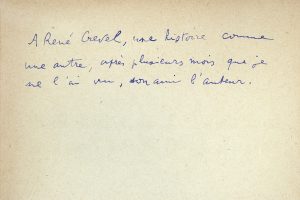 A René Crevel, une histoire comme
une autre, après plusieurs mois que je
ne l'ai vu, son ami l'auteur.